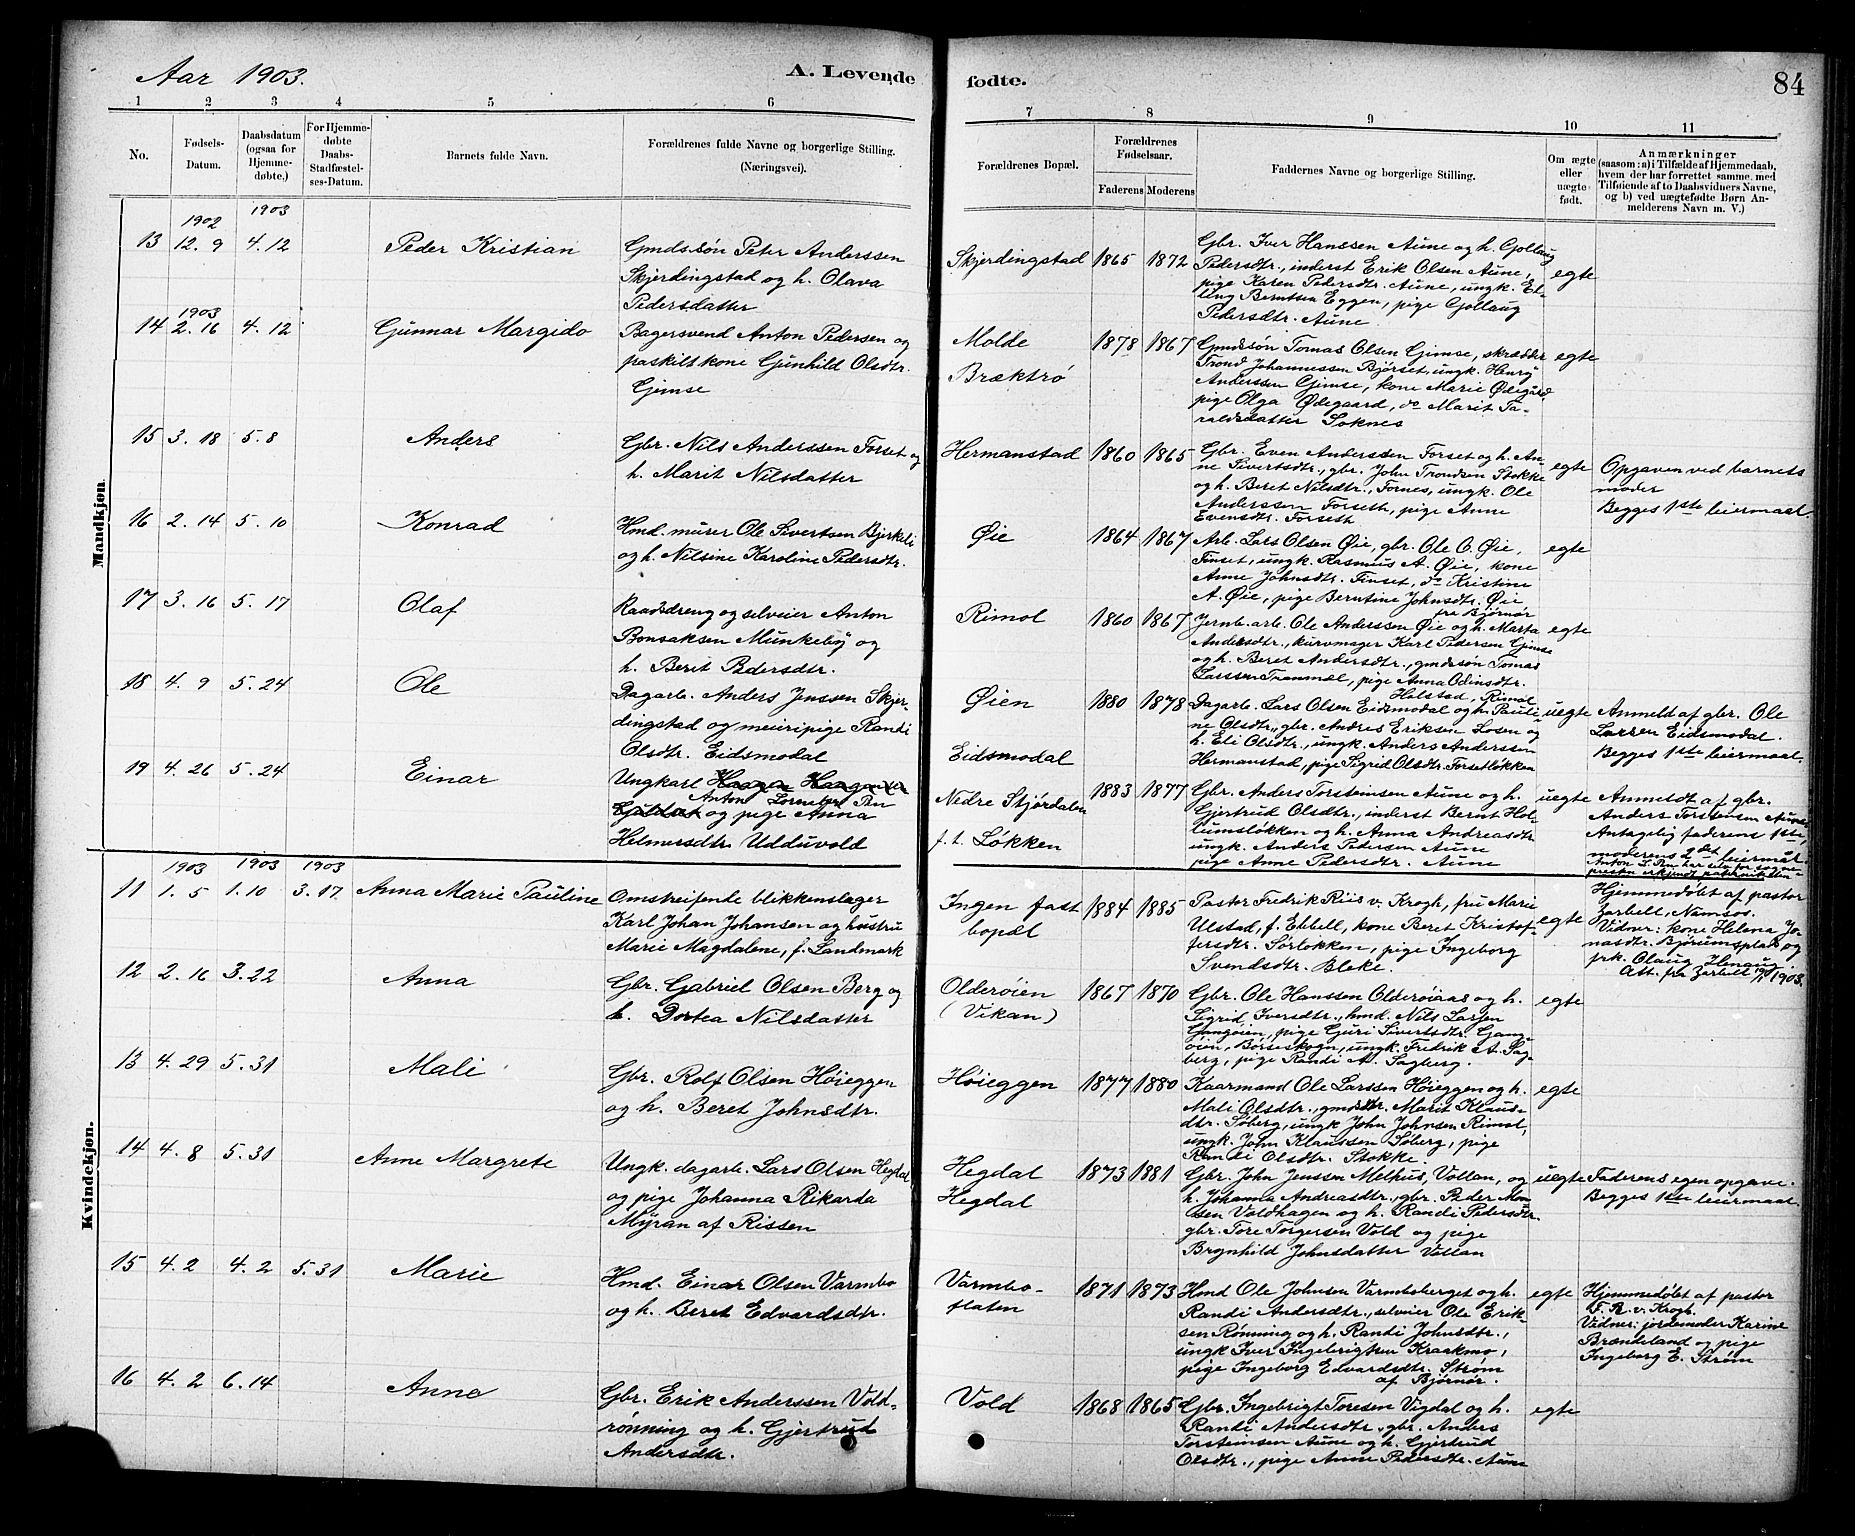 Aar 1903.
A. Levende
fødte.
84
1 2 3 4 5 6 7 8 9 10 11
No.
Fødsels-Datum.
Daabsdatum (ogsaa for Hjemme-døbte.)
For Hjemme-døbte Daabs-Stadfæstel-ses-Datum.
Barnets fulde Navn.
Forældrenes fulde Navne og borgerlige Stilling.
(Næringsvei).
Forældrenes Bopæl.
Forældrenes Fødselsaar.
Faderens Moderens
Faddernes Navne og borgerlige Stilling.
Om ægte eller uægte født.
Anmærkninger
(saasom: a) i Tilfælde af Hjemmedaab,
hvem der har forrettet samme, med
Tilføiende af to Daabsvidners Navne,
og b) ved uægtefødte Børn An-
melderens Navn m. V.)
Mandkjøn.
1902 1903
13 12. 9 4. 12 Peder Kristian
Gmds.søn Peter Anderssen
Skjerdingstad og h. Olava
Pedersdatter
Skjerdingstad 1865 1872
Gbr. Iver Hanssen Aune og h. Gollaug
Pedersdtr., inderst Erik Olsen Aune,
pige Karen Pedersdtr. Aune, ungk. El-
ling Berntsen Eggen, pige Gollaug
Pedersdtr. Aune
egte
1903
14 2. 16 4. 12 Gunnar Margido
Bagersvend Anton Pedersen og
paskilt kone Gunhild Olsdtr.
Gimse
Molde
Bræktrø
1878 1867
Gmdssøn Tomas Olsen Gimse, skrædder
Trond Johannessen Bjørset, ungk. Henry
Anderssen Gimse, kone Marie Ødegård
pige Olga Ødegaard, do Marit Ta-
raldsdatter Soknes
egte
15 3. 18 5. 8 Anders
Gbr. Nils Anderssen Forset og
h. Marit Nilsdatter
Hermanstad 1860 1865
Gbr. Even Anderssen Forset og h. An-
ne Sivertsdtr., gbr. John Trondsen Stokke
og h. Beret Nilsdtr., Fornes, ungk. Ole
Anderssen Forseth, pige Anne
Evensdtr. Forseth
egte
Opgaven ved barnets
moder
Begges 1ste leiermaal.
16 2. 14 5. 10 Konrad
Hmd. murer Ole Sivertsen Bjerkeli
og h. Nilsine Karoline Pedersdtr.
Øie 1864 1867
Arb. Lars Olsen Øie, gbr. Ole O. Øie,
Finset, ungk. Rasmus A. Øie, kone
Anne Johnsdtr. Finset, do Kristine
A. Øie, pige Berntine Johnsdtr. Øie
fra Bjørnør
egte
17 3. 16 5. 17 Olaf
Raadsdreng og selveier Anton
Bonsaksen Munkeby og
h. Berit Pedersdtr.
Rimol 1860 1867
Jernb. arb. Ole Anderssen Øie og h. Marta
Andersdtr., kurvmager Karl Pedersen Gimse
og h. Beret Andersdtr., gmdssøn Tomas
Larssen Tranmæl, pige Anna Odinsdtr.
Holstad, Rimol
egte
18 4. 9 5. 24 Ole
Dagarb. Anders Jenssen Skjer-
dingstad og meieripige Randi
Olsdtr. Eidsmodal
Øien
Eidsmodal
1880 1878
Dagarb. Lars Olsen Eidsmodal og h. Pauli-
ne Olsdtr., gbr. Andres Eriksen Losen og
h. Eli Olsdtr., ungk. Anders Anderssen
Hermanstad, pige Sigrid Olsdtr. Forsetløkken
uegte
Anmeld af gbr. Ole
Larsen Eidsmodal.
Begges 1ste leiermaal.
19 4. 26 5. 24 Einar
Ungkarl Haagen Haagensen
Anton
og pige Anna
Helmersdtr. Udduvold
Nedre Stjørdalen
f.t. Løkken
1883 1877
Gbr. Anders Torsteinsen Aune og h.
Gjertrud Olsdtr., inderst Bernt Hol-
lumsløkken og h. Anna Andreasdtr
ungk. Anders Pedersen Aune
pige Anne Pedersdtr. Aune
uegte
Anmeldt af gbr.
Anders Torstensen Aune.
Antagelig faderens 1ste,
moderens 2det leiermaal.
Kvindekjøn.
1903 1903 1903
11 1. 5 1. 10 3. 17 Anna Marie Pauline
Omstreifende blikkenslager
Karl Johan Johansen og hustru
Marie Magdalene, f. Landmark
Ingen fast
bopæl
1884 1885
Pastor Fredrik Riis v. Krogh, fru Marie
Ulstad, f. Ebbell, kone Beret Kristof-
fersdtr. Sørløkken, pige Ingeborg
Svendsdtr. Bleke.
egte
Hjemmedøbt af pastor
Zarbell, Namsos.
Vidner: kone Helena Jo-
nasdtr. Bjørumsplads og
prk. Olaug Henaug
Att. fra Zarbell 1903.
12 2. 16 3. 22 Anna
Gbr. Gabriel Olsen Berg og
h. Dortea Nilsdatter
Olderøien
(Vikan)
1867 1870
Gbr. Ole Hanssen Olderøiaas og h.
Sigrid Iversdtr., hmd. Nils Larsen
Gangøien, pige Guri Sivertsdtr. Gang-
øien, Børseskogn, ungk. Fredrik A. Sag-
berg, pige Randi A. Sagberg.
egte
13 4. 29 5. 31 Mali
Gbr. Rolf Olsen Høieggen
og h. Beret Johnsdtr.
Høieggen 1877 1880
Kaarmand Ole Larssen Høieggen og h.
Mali Olsdtr., gmdsdtr. Marit Klaus-
dtr. Søberg, ungk John Johnsen Rimol,
ungk. John Klaussen Søberg, pige
Randi Olsdtr. Stokke.
egte
14 4. 8 5. 31 Anne Margrete
Ungk. dagarb. Lars Olsen Hegdal
og pige Johanna Rikarda
Myran af Rissen
Hegdal
Hegdal
1873 1881
Gbr. John Jenssen Melhus, Vollan, og
h. Johanna Andreasdtr., gbr. Peder Mon-
sen Voldhagen og h. Randi Pedersdtr.
gbr. Tore Torgersen Vold og pige
Brynhild Johnsdatter Vollan
uegte
Faderens egen opgave.
Begges 1ste leiermaal.
15 4. 2 4. 2 5. 31 Marie
Hmd. Einar Olsen Varmbo
og h. Beret Edvardsdtr.
Varmbo-
flaten
1871 1873
Hmd Ole Johnsen Varmboberget og h.
Randi Andersdtr., selveier Ole Erik-
sen Rønning og h. Randi Johnsdtr.,
ungk Iver Ingebrigtsen Kraakmo,
pige Ingeborg Edvardsdtr. Strøm
af Bjørnør.
egte
Hjemmedøbt af pastor
F. R. v. Krogh.
Vidner: jordemoder Karine
Brændeland og pige
Ingeborg E. Strøm
16 4. 2 6. 14 Anna
Gbr. Erik Anderssen Vold-
rønning og h. Gjertrud
Andersdtr.
Vold 1868 1865
Gbr. Ingebrigt Toresen Vigdal og h.
Randi Andersdtr., gbr. Anders
Torsteinsen Aune og h. Gjertrud
Olsdtr., pige Anne Pedersdtr. Aune
egte